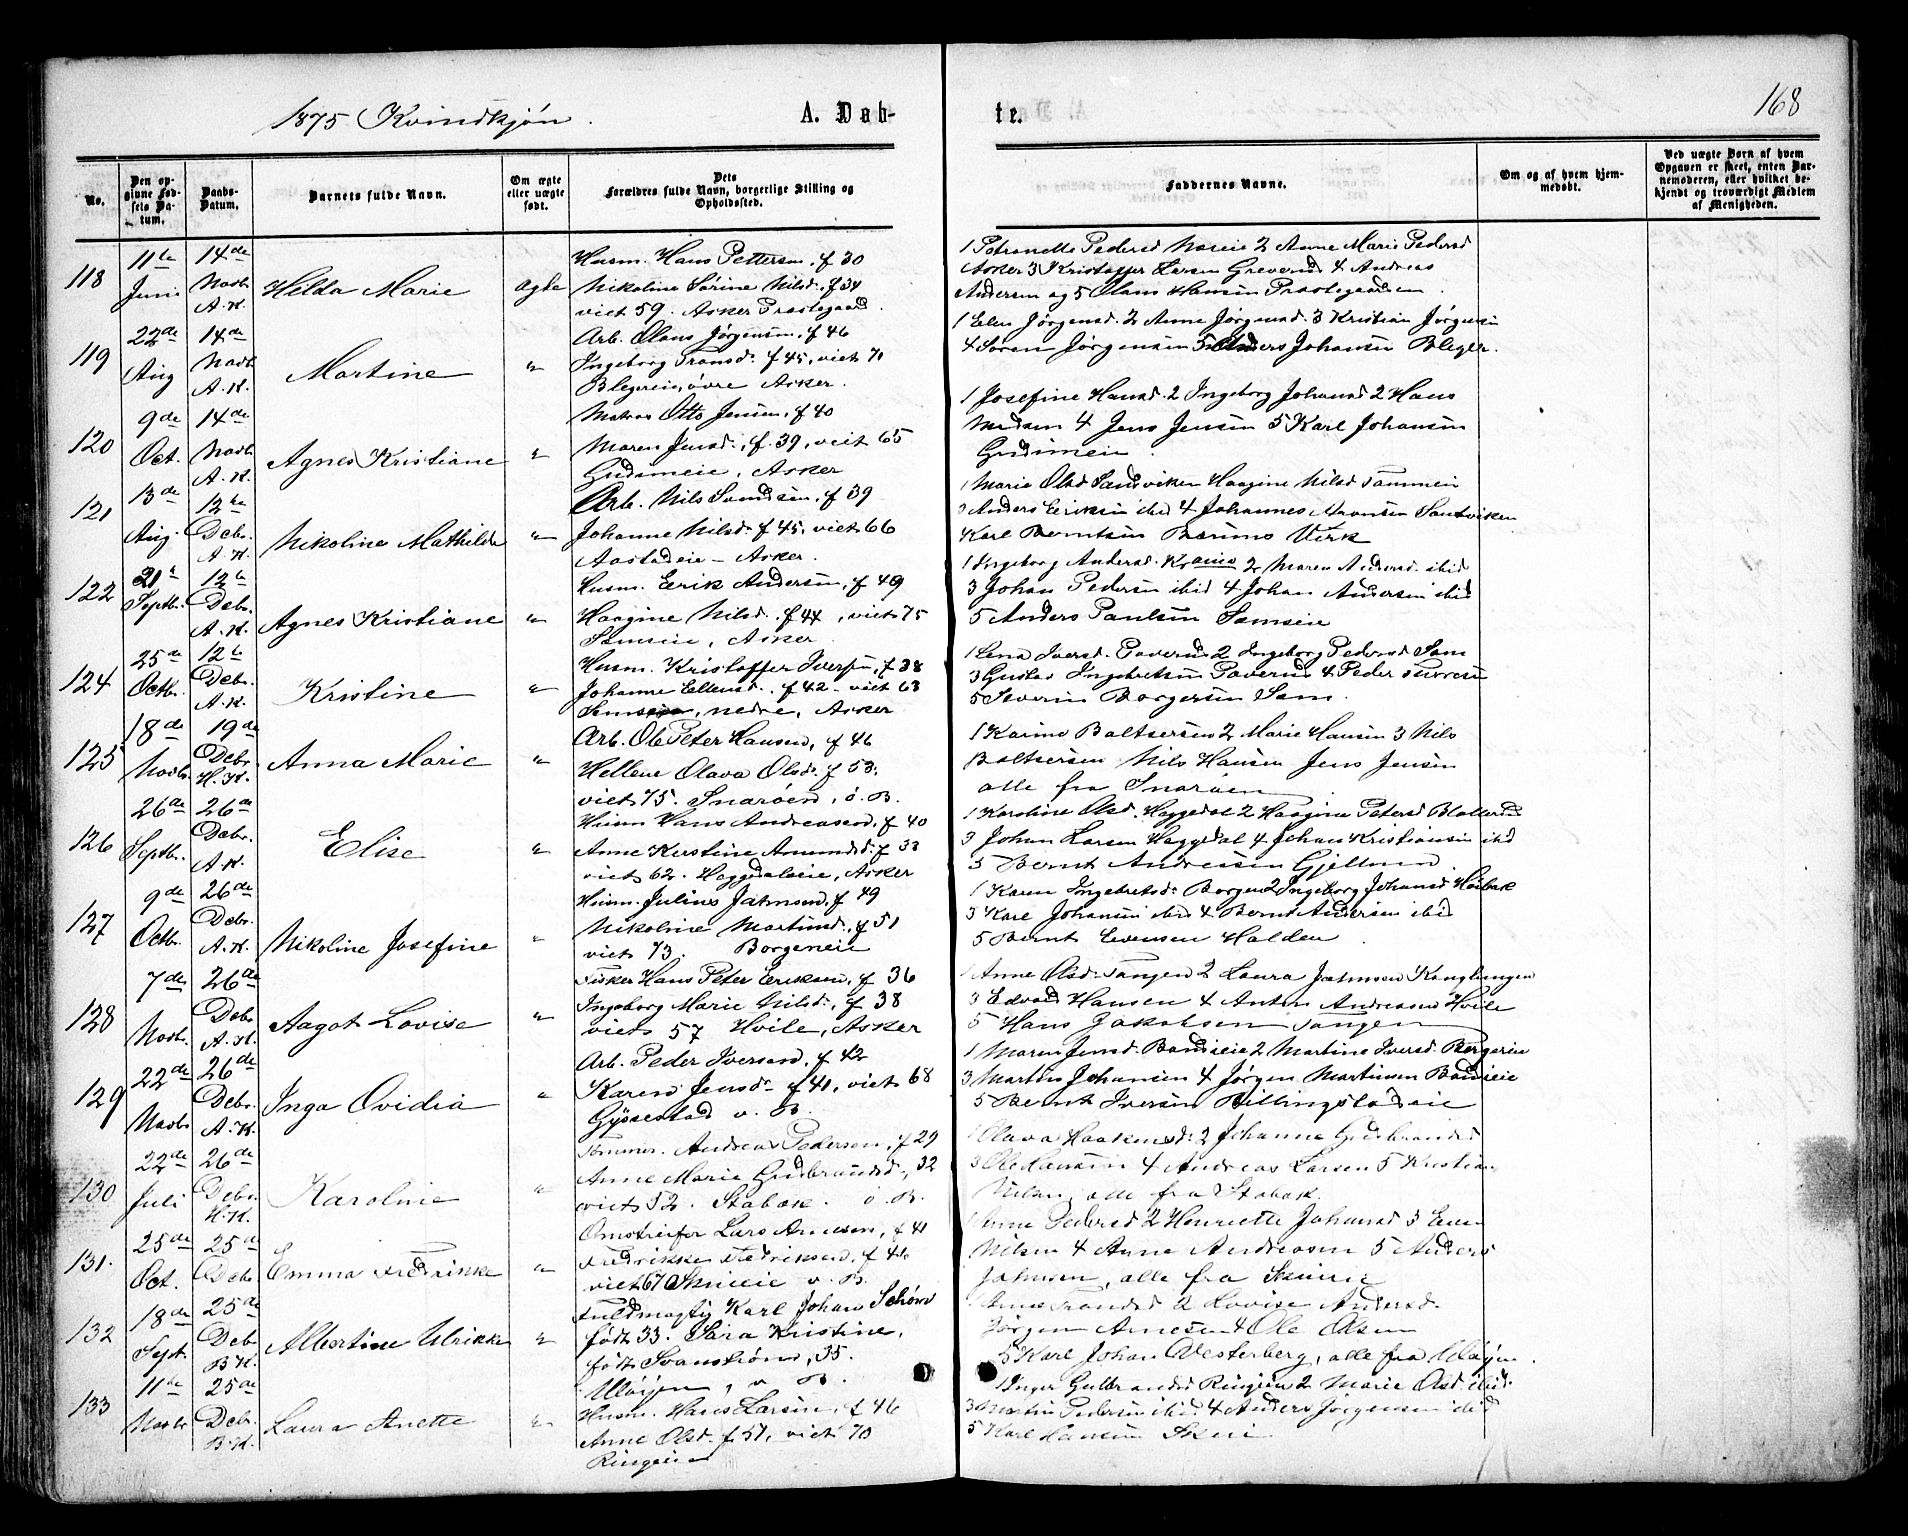 168
1875 Kvindkjøn.
A. Døb-
te.
No.
Den op-
givne Fød-
sels Da-
tum.
Daabs-
Datum.
Barnets fulde Navn.
Om ægte
eller uægte
født.
Dets
Forældres fulde Navn, borgerlige Stilling og
Opholdssted.
Faddernes Navne.
Om og af hvem hjem-
medøbt.
Ved uægte Børn af hvem
Opgaven er skeet, enten Bar-
nemoderen, eller hvilket be-
kjendt og troværdigt Medlem
af Menigheden.
118
11te
Juni
14de
Novbr
A.K.
Hilda Marie
ægte
Husm. Hans Pettersen, f 30
Nikoline Sørine Nilsd. f 34
viet 59. Asker Præstegaard
1 Petronelle Pedersd 2 Anne Marie Pedersd
Asker 3 Kristoffer Larsen Greverud 4 Andreas
Andersen og 5 Olaus Hansen Præstegaarden
119
22de
Aug
14de
Novb
A.K.
Martine
"
Arb. Olaus Jørgensen, f 46
Ingeborg f 45, viet 71
øvre Asker.
1 Elen Jørgensd. 2 Anne Jørgensd. 3 Kristian Jørgensen
4 Søren Jørgensen 5 Anders Johansen
120
9de
Oct.
14de
Novb
A.K.
Agnes Kristiane
"
Matros Otto Jensen, f 40
Maren Jensd., f. 39, viet 65
Gudimeie, Asker
1 Josefine Hansd. 2 Ingeborg Johansd 2 Hans
4 Jens Jensen 5 Karl Johansen
Gudimeie.
121
13de
Aug.
12te
Debr.
A.K.
Nikoline Mathilde
"
Arb. Nils Svendsen, f 39
Johanne Nilsd. f 45, viet 66
Aastadeie - Asker.
1 Marie Olsd Sandviken Haagine Nilsd
3 Anders Eriksen ibid 4 Johannes Sandviken
Karl Berntsen Bærums Værk
122
21
Septbr.
12te
Debr.
A.K.
Agnes Kristiane
"
Husm. Erik Andersen, f 49
Haagine Nilsd. f 44, viet 75
Semseie, Asker
1 Ingeborg Andersd. 2 Maren Andersd. ibid
3 Johan Pedersen ibid 4 Johan Andersen ibid
5 Anders Paulsen Semseie
124
25de
Octbr.
12te
Debr.
A.K.
Kristine
"
Husm. Kristoffer Iversen, f 38
Johanne Ellensd. f 42 - viet 63
nedre, Asker
1 Lena Iversd. 2 Ingeborg Pedersd Sem
3 Gustav Ingebretsen 4 Peder
5 Severin Borgersen Sem.
125
18de
Novbr.
19de
Debr.
H.K.
Anna Marie
"
Arb. Ole Peter Hansen, f 46
Hellene Olava Olsdr. f 53.
viet 75. Snarøen, ø. B.
1 Karine Baltsersen 2 Marie Hansen 3 Nils
Baltsersen Nils Hansen Jens Jensen
alle fra Snarøen
126
26de
Septbr.
26de
Debr.
A.K.
Elise
"
Husm Hans Andreasen, f 40
Anne Kirstine Amundsd. f 33
viet 62. Heggedaleie, Asker
1 Karoline Olsd. Heggedal 2 Haagine Petersd
3 Johan Larsen Heggedal 4 Johan Kristiansen ibid
5 Bernt Andreasen Gjellum
127
9de
Octbr.
26de
Debr.
A.K.
Nikoline Josefine
"
Husm. Julius Jahnsen, f 49
Nikoline f 51
viet 73. Borgeneie
1 Karen Ingebretsdr Borgen 2 Ingeborg Johansd
3 Karl Johansen ibid 4 Bernt Andersen ibid
5 Bernt Evensen Halden
128
7de
Novbr.
26de
Debr.
A.K.
Aagot Lovise
"
Fisker Hans Peter Eriksen, f 36
Ingeborg Marie Nilsd. f 38
viet 57 Hvile, Asker
1 Anne Olsd. Tangen 2 Laura Jahnsen
3 Edvard Hansen 4 Anton Andreasen Hvile
5 Hans Jakobsen Tangen
129
22de
Novbr
26de
Debr.
A.K.
Inga Ovidia
"
Arb. Peder Iversen, f 42
Karen Jensdr f 41, viet 68
Gyssestad v. B.
1 Maren Jensd. 2 Martine Iversd.
3 Martin Johansen 4 Jørgen Martinsen
5 Bernt Iversen Billingstadeie
130
22de
Juli
26de
Debr.
H.K.
Karoline
"
Tømmer. Andreas Pedersen, f 29
Anne Marie Gudbrandsd., 32
viet 52. Stabæk ø. B.
1 Olava Haakensd. 2 Johanne Gudbrandsd
3 Ole Hansen 4 Andreas Larsen 5 Kristian
Nilsen, alle fra Stabæk.
131.
25de
Oct.
25de
Debr
Emma Fredrikke
"
Omstreifer Lars Arnesen, f 41
Fredrikke Fredriksen, f 46
viet 67 Skuieie v. B.
1 Anne Pedersd 2 Henriette Johansd 3 Even
Nilsen 4 Anne Andreasen 5 Anders
Jahnsen, alle fra Skuieie
132
18de
Sept.
25de
Deb
B.K.
Albertine Ulrikke
"
Fuldmægtig Karl Johan
født 33. Sara Kristine,
født Svanstrøm, 35.
v. B.
2 Lovise Andersd.
Jørgen Arnesen 4 Ole Olsen
5 Karl Johan Westerberg, alle fra
133
11te
Novbr
25de
Debr.
B.K.
Laura Anette
"
Husm. Hans Larsen, f 46
Anne Olsd. f 51, viet 70
1 Inger Gulbrandsd 2 Marie Olsd ibid.
3 Martin Pedersen ibid 4 Anders Jørgensen ibid
5 Karl Hansen